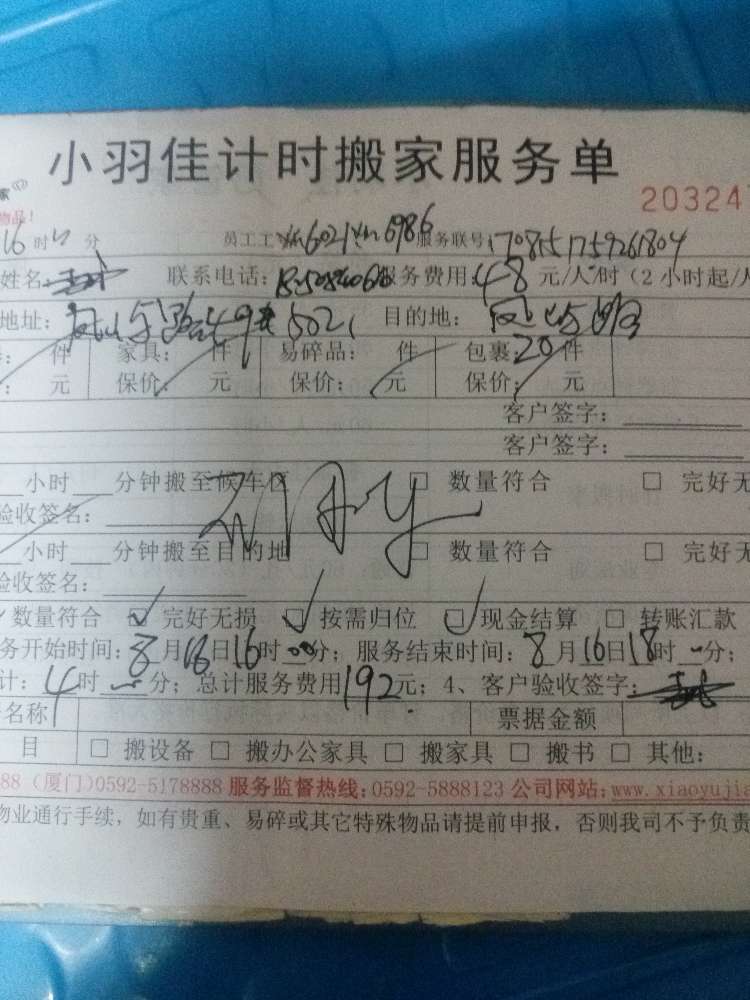 小羽佳计时搬家服务单
家
20324
物品!
16时 分 员工工 6021 6986 服务联号: 1708151759261804
姓名 联系电话: 服务费用: 48 元/人/时(2小时起/人
地址: 49 502 目的地:
: 件 家具: 件 易碎品: 件 包裹: 20 件
: 元 保价: 元 保价: 元 保价: 元
客户签字:
客户签字:
小时 分钟搬至候车区 □ 数量符合 □ 完好无
验收签名:
小时 分钟搬至目的地 □ 数量符合 □ 完好无
验收签名:
数量符合 ☑ 完好无损 ☑ 按需归位 ☑ 现金结算 □ 转账汇款
务开始时间: 8月16日16时00分; 服务结束时间: 8月16日18时 分;
计: 4时 分; 总计服务费用192元; 4、客户验收签字:
名称 票据金额
目 □ 搬设备 □ 搬办公家具 □ 搬家具 □ 搬书 □ 其他:
88 (厦门)0592-5178888 服务监督热线: 0592-5888123 公司网站: www.xiaoyujia
物业通行手续, 如有贵重、易碎或其它特殊物品请提前申报, 否则我司不予负责